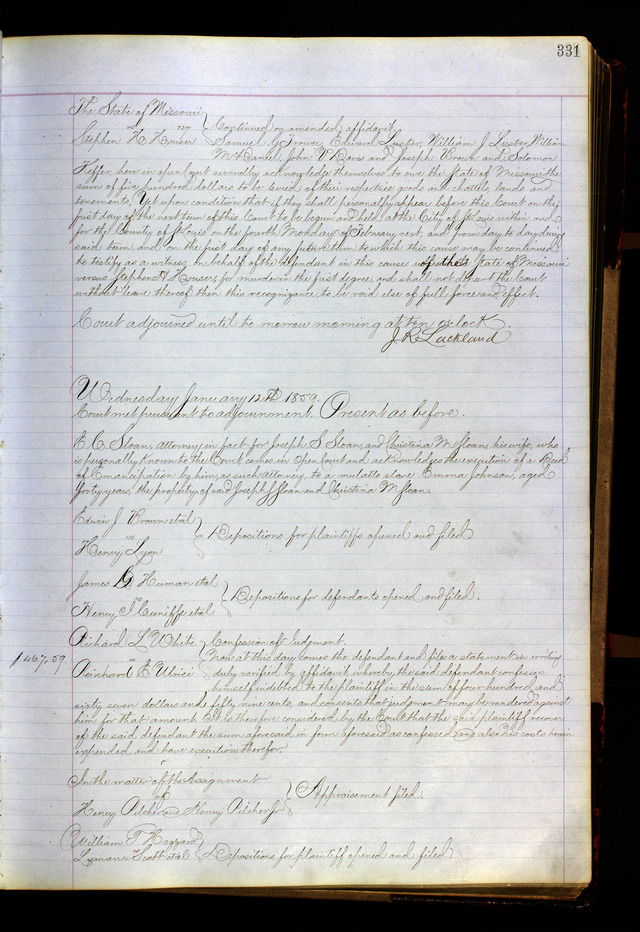 331
The State of Missouri
vs 727 } Continued on amended affidavit
Stephen H Houser Samuel G Trower, Edward Luster, William J Luster, William
McDaniel, John V Davis and Joseph Brown and Solomon
Heffer, here in open Court severally acknowledge themselves to owe the State of Missouri the
sum of five hundred dollars to be levied of their respective goods and chattels, lands and
tenements, Yet upon condition that if they shall personally appear before this Court on the
first day of the next term of this Court to be begun and held at the City of St Louis within and
for the County of St Louis on the fourth Monday of February next, and from day to day during
said term, and on the first day of any future term to which this cause may be continued
to testify as a witness on behalf of the defendant in this cause of the State of Missouri
versus Stephen H Houser, for murder in the first degree, and shall not depart the Court
without leave thereof then this recognizance to be void else of full force and effect.
Court adjourned until to morrow morning at ten o'clock.
J. R. Lackland
Wednesday January 12th 1859.
Court met pursuant to adjournment. Present as before.
E. C. Sloan, attorney in fact for Joseph S Sloan, and Christina M Sloan, his wife, who
is personally known to the Court comes in open Court and acknowledges the execution of a Deed
of Emancipation by him, as such attorney, to a mulatto slave Emma Johnson, aged
forty years, the property of said Joseph S Sloan and Christina M Sloan.
Edwin J Brown et al
vs } Depositions for plaintiffs opened and filed
Henry Lyon
James G Human et al
vs } Depositions for defendants opened and filed.
Henry T Cuniffe et al
Richard L White } Confession of Judgment.
$467.59 vs Now at this day comes the defendant and files a statement in writing
Reinhart E Ulrici duly verified by affidavit, whereby the said defendant confesses
himself indebted to the plaintiff in the sum of four hundred and
sixty seven dollars and fifty nine cents, and consents that judgment may be rendered against
him for that amount. It is therefore considered by the Court that the said plaintiff recover
of the said defendant the sum aforesaid in form aforesaid as confessed and also his costs herein
expended, and have execution therefor.
In the matter of the Assignment
of } Appraisement filed.
Henry Pilcher and Henry Pilcher Jr
William T Hazzard
vs
Lyman Scott et al } Depositions for plaintiff opened and filed